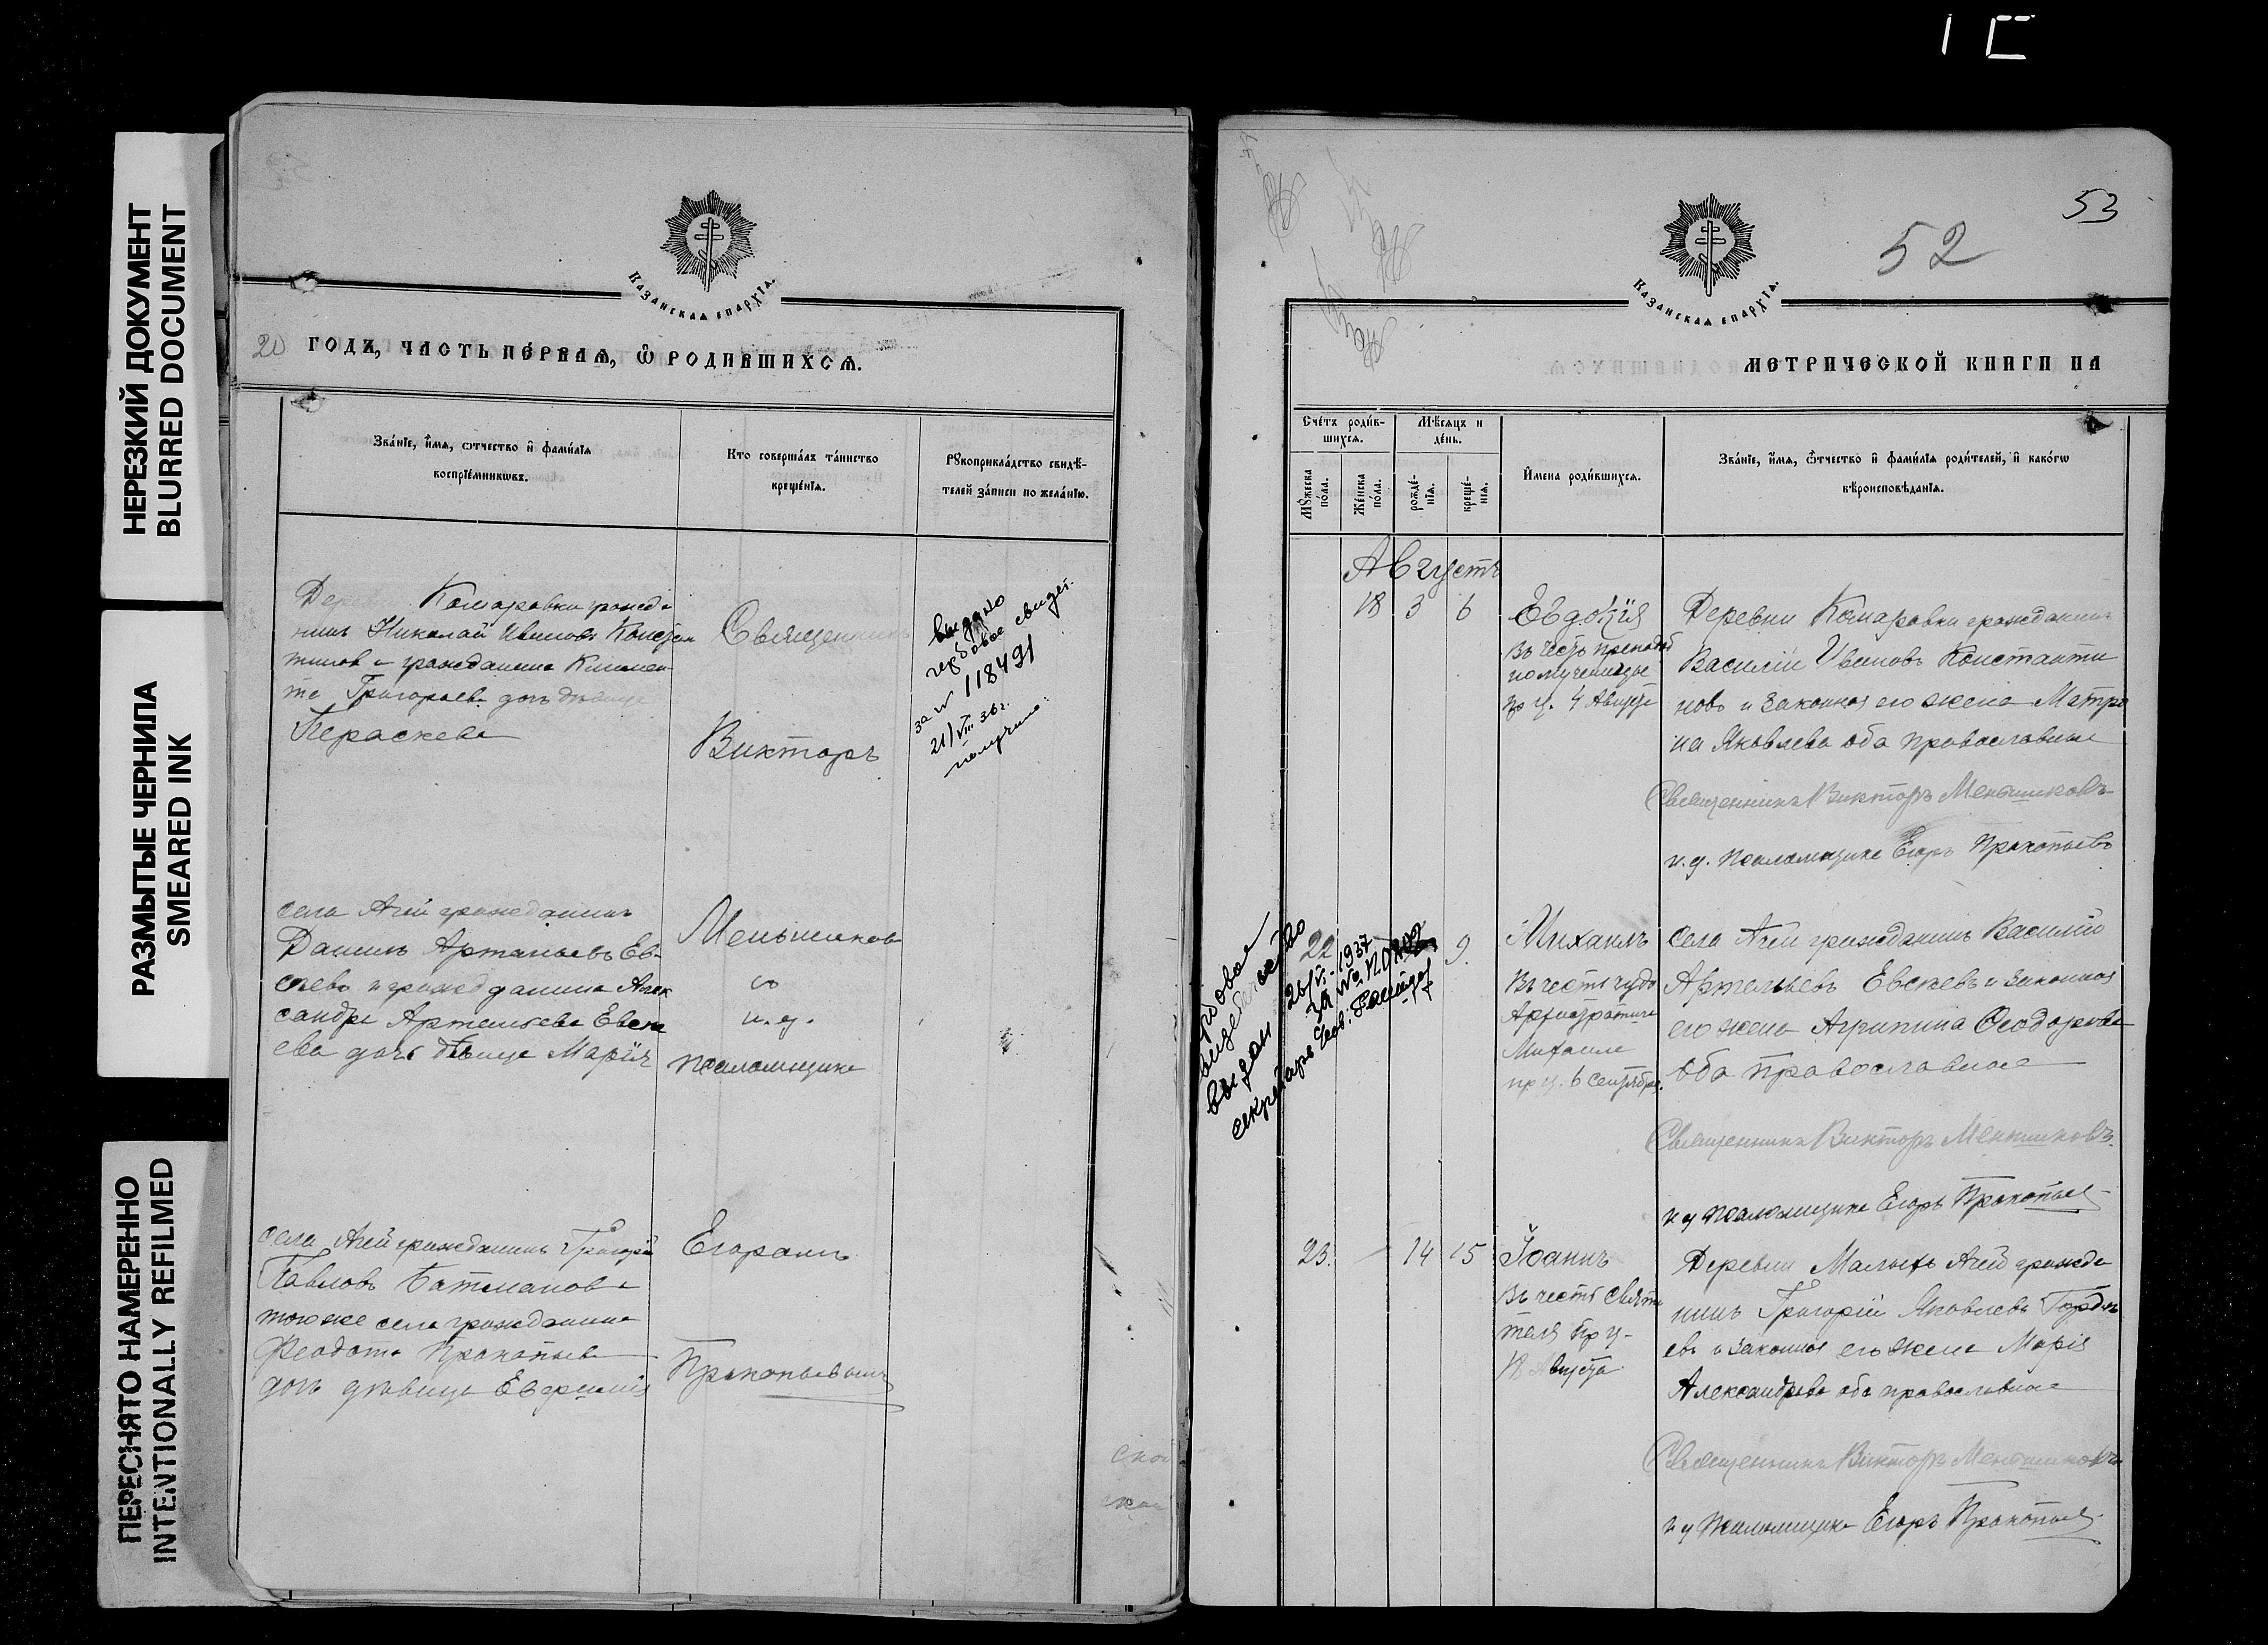 НЕРЕЗКИЙ ДОКУМЕНТ
BLURRED DOCUMENT
РАЗМЫТЫЕ ЧЕРНИЛА
SMEARED INK
ПЕРЕСНЯТО НАМЕРЕННО
INTENTIONALLY REFILMED
КАЗАНСКАЯ ЕПАРХІЯ.
20 ГОДЪ, ЧАСТЬ ПЕРВАЯ, Ѿ РОДИВШИХСЯ.
Зва́нїе, и́мя, ѻтчество и҆ фами́лїя
воспрїе́мникѡвъ.
Кто соверша́лъ та́инство
креще́нїя.
Рꙋкоприкла́дство свидѣ́-
телей за́писи по жела́нїю.
Комаровки гражда
нинъ Николай Ивановъ Констан
тинов и гражданина
Григорьева дочь девица
Параскева
Священникъ
Викторъ
выдано
гербовое свидет.
за № 118491
21/VIII 36 г.
получила
села Ачей гражданинъ
Данилъ Артемьевъ Ев-
сѣевъ и гражданина Алек
сандра Артемьева Евсѣ
ева дочь дѣвица Марія
Меньшиков
и. д.
псаломщика
села Ачей гражданинъ Григорій
Павловъ Батманов и
тогоже села гражданина
Феодота Прокопьева
дочь дѣвица Евфимія
Егоромъ
Прокопьевымъ
53
52
КАЗАНСКАЯ ЕПАРХІЯ.
МЕТРИЧЕСКОЙ КНИГИ НА
Сче́тъ роди́в-
шихся.
Мѣ́сяцъ и
де́нь.
Мꙋ́жеска
по́ла.
Же́нска
по́ла.
рожде́-
нїя.
креще́-
нїя.
И҆мена роди́вшихся.
Зва́нїе, и́мя, ѻ҆тчество и҆ фами́лїя роди́телей, и҆ како́гѡ
вѣроисповѣ́данїя.
Августъ
18 3 6 Евдокія
Въ честь преподоб
номученицы
пр ч. 4 Августа
Деревни Комаровки гражданинъ
Василій Ивановъ Константи
новъ и законная его жена Матро
на Яковлева оба православные
Священникъ Викторъ Меньшиковъ
и. д. псаломщика Егоръ Прокопьевъ
выдан 26/VI-1937
секретарь
22 9. Михаилъ
Въ честь чуда
Архистратига
Михаила
пр ч. 6 сентября.
Села Ачей гражданинъ Василій
Артемьевъ Евсѣевъ и законная
его жена Агрипина Феодорова
оба православные
Священникъ Викторъ Меньшиковъ.
и д псаломщика Егоръ Прокопьев
23. 14 15 Іоаннъ
Въ честь Святи
теля пр ч-
18 Августа
Деревни Малыхъ Ачей гражда
нинъ Григорій Яковлевъ Горде
евъ и законная его жена Марія
Александрова оба православные
Священникъ Викторъ Меньшиковъ
и д псаломщика Егоръ Прокопьев